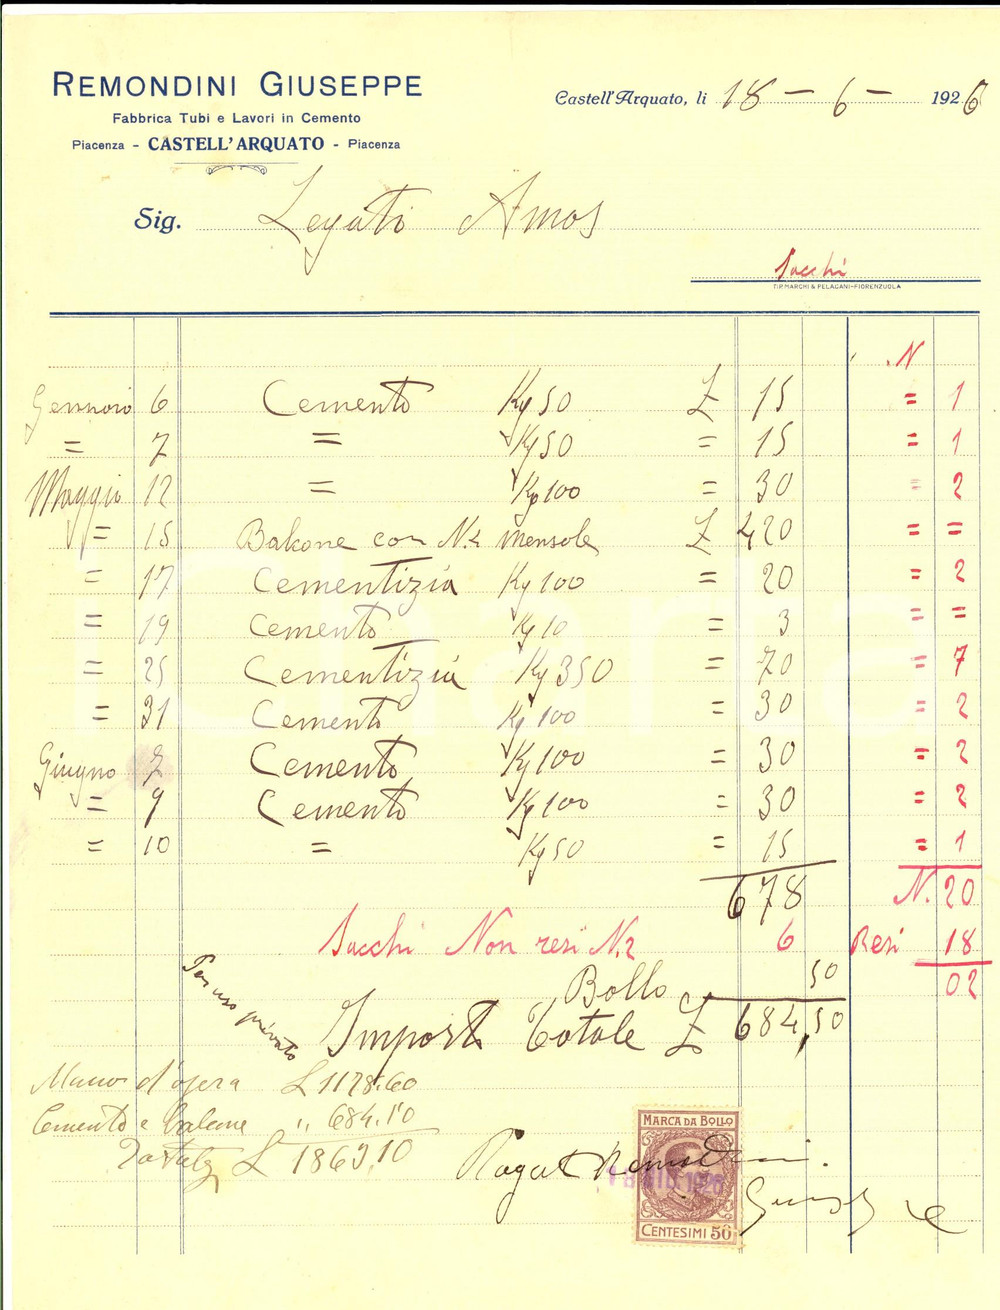 REMONDINI GIUSEPPE
Fabbrica Tubi e Lavori in Cemento
Piacenza - CASTELL'ARQUATO - Piacenza
Castell'Arquato, li 18 - 6 - 1926
Sig. Legati Amos
Sacchi
TIP. MARCHI & PELAGANI-FIORENZUOLA
N
Gennaio 6 Cemento Kg 50 £ 15 = 1
= 7 = Kg 50 = 15 = 1
Maggio 12 = Kg 100 = 30 = 2
= 15 Balcone con N. 2 mensole £ 420 = =
= 17 Cementizia Kg 100 = 20 = 2
= 19 Cemento Kg 10 = 3 = =
= 25 Cementizia Kg 350 = 70 = 7
= 31 Cemento Kg 100 = 30 = 2
Giugno 7 Cemento Kg 100 = 30 = 2
= 9 Cemento Kg 100 = 30 = 2
= 10 = Kg 50 = 15 = 1
678 N. 20
Sacchi Non resi N. 2 6 Resi 18
Bollo 50 02
Per uso privato
Importo Totale £ 684,50
Mano d'opera £ 1178.60
Cemento e balcone " 684.10
Totale £ 1863.10
MARCA DA BOLLO
Remondini
Giuseppe
CENTESIMI 50
iCharta